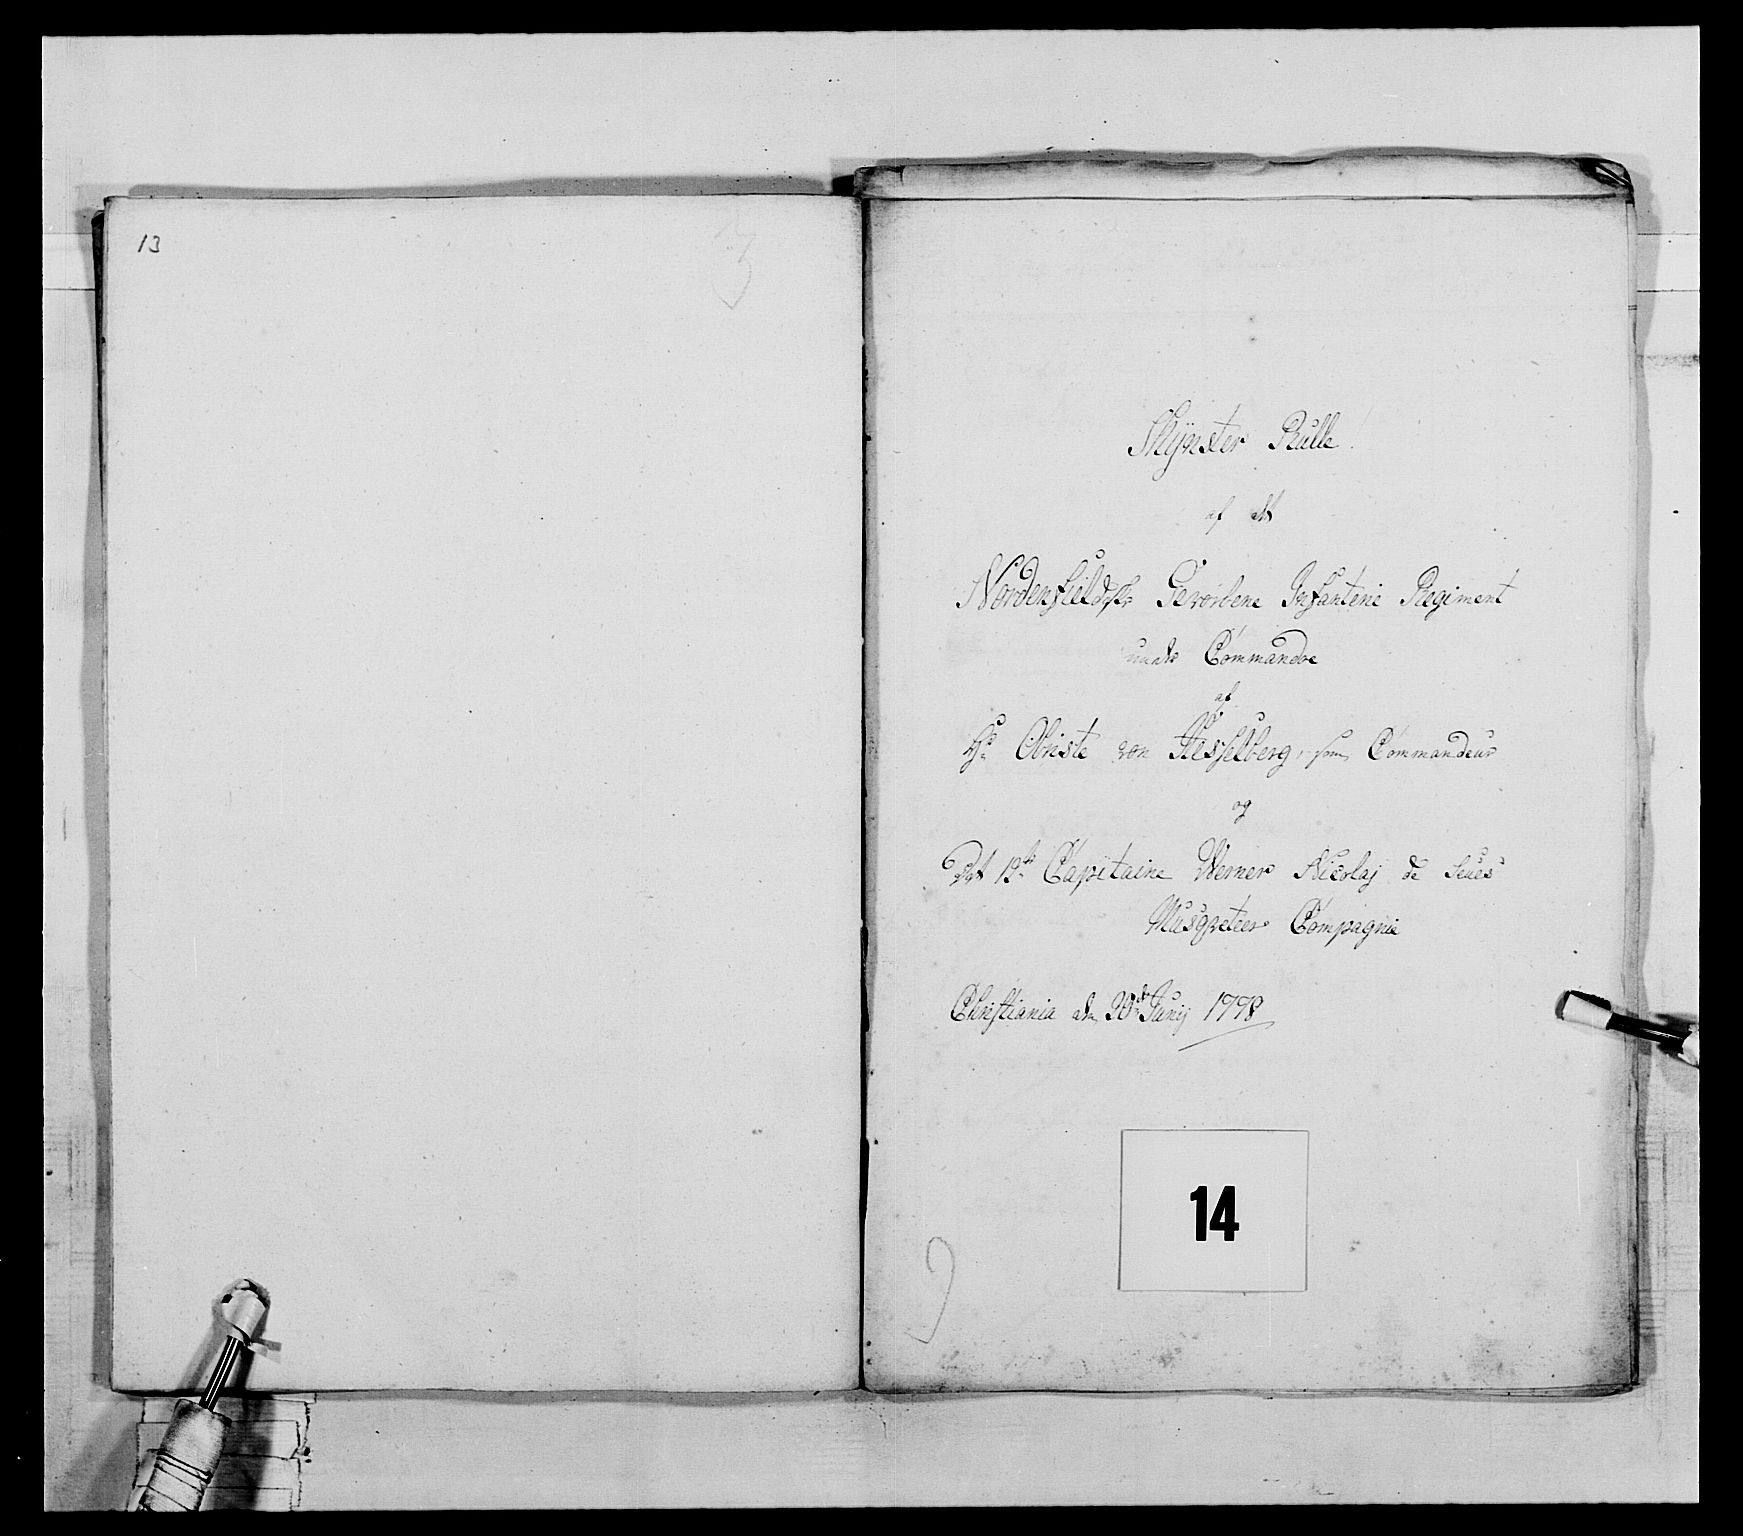 13
Mynster Rulle
af det
Nordenfieldske Gevorbene Infanterie Regiment
under Commando
af
Hr Obriste von Hesselberg, som Commandeur
og
Capitaine Werner Nicolaj de Seues
Musqveteer Compagnie
Christiania den 30de Junij 1798
14